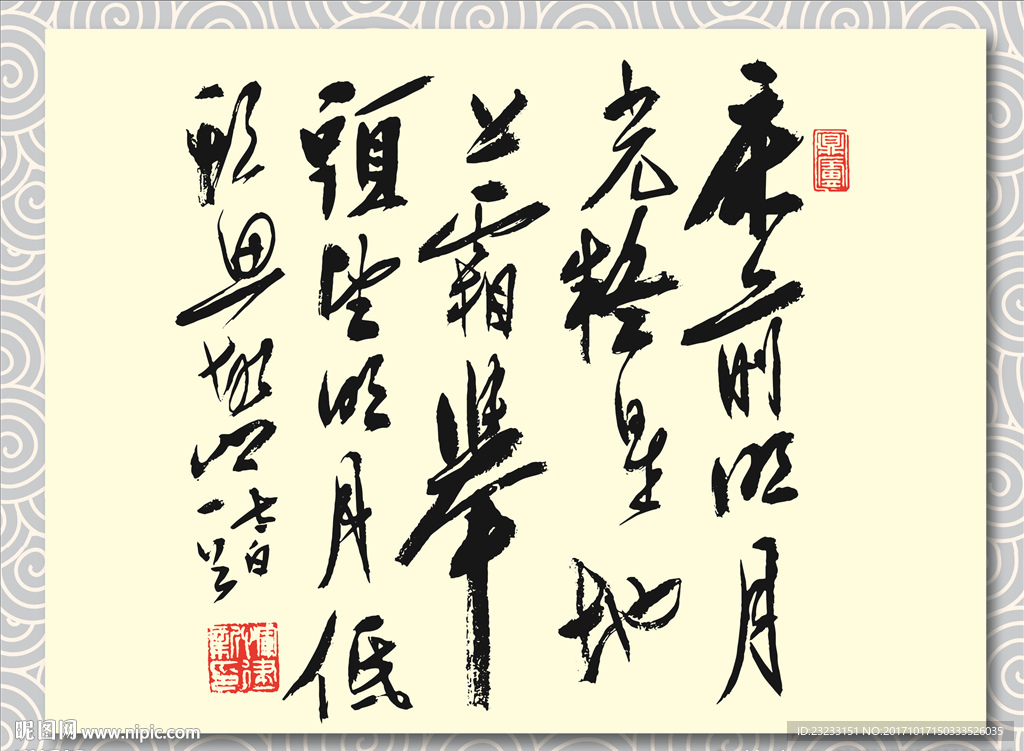 床前明月
光疑是地
上霜舉
頭望明月低
頭思故鄉
昵图网 www.nipic.com
ID:23233151 NO:20171017150333526035